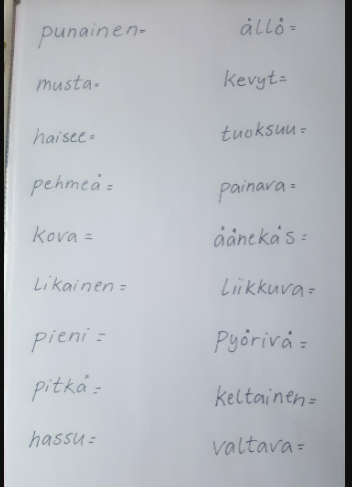 punainen=
musta=
haisee=
pehmeä =
kova =
Likainen =
pieni =
pitkä =
hassu =
ällö =
kevyt =
tuoksuu =
painava =
äänekäs =
Liikkuva =
Pyörivä =
keltainen =
valtava =